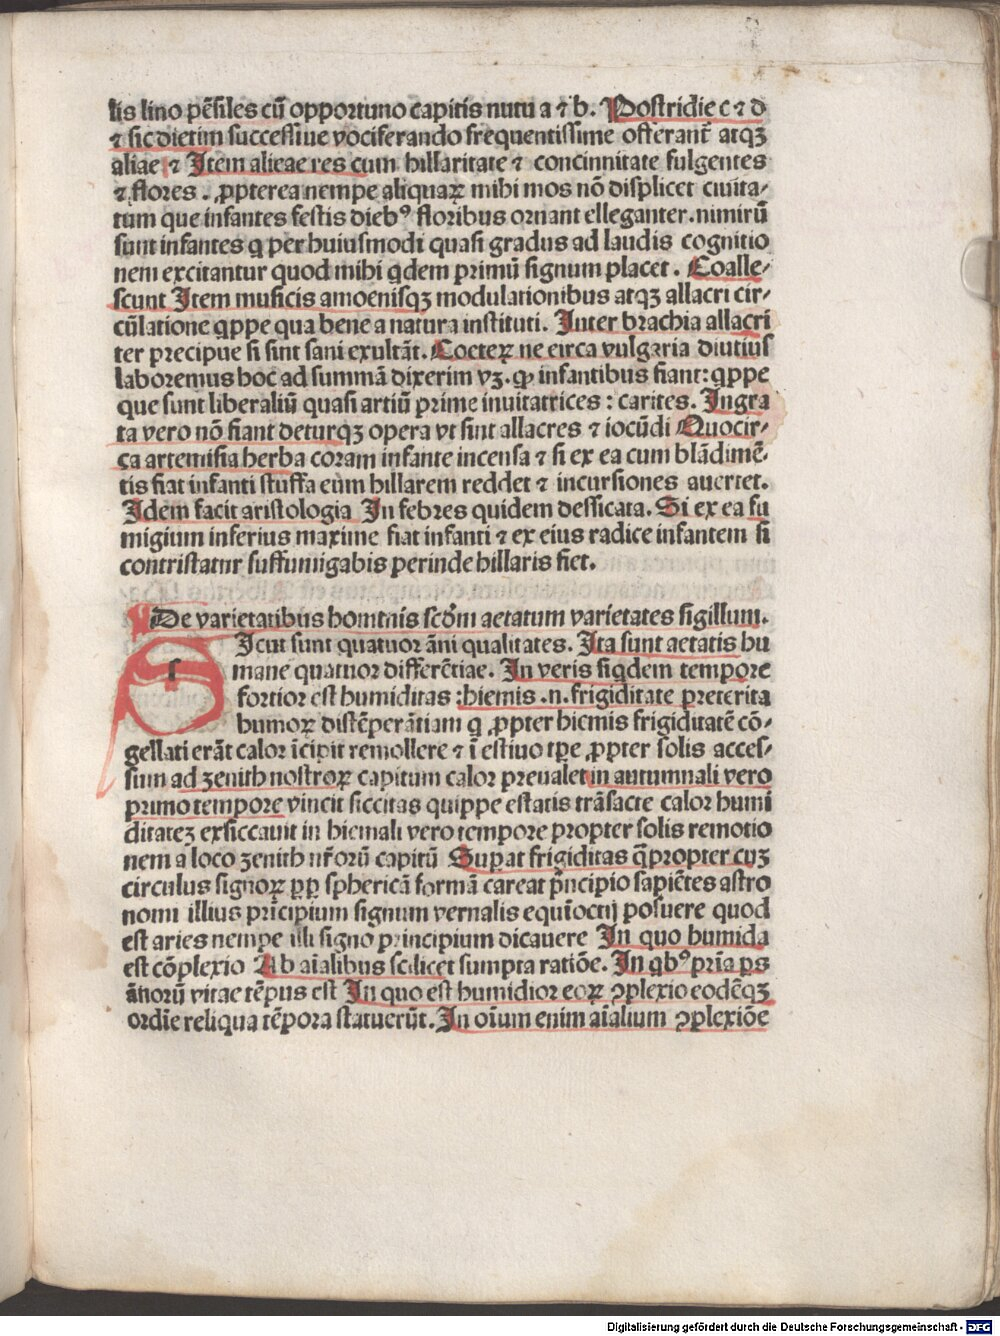 lis lino pēsiles cū opportuno capitis nutu a ⁊ b. Postridie c ⁊ d
⁊ sic dietim successiue vociferando frequentissime offerant̄ atqꝫ
aliae ⁊ Item alieae res cum hillaritate ⁊ concinnitate fulgentes
⁊ flores . ꝓpterea nempe aliquaꝝ mihi mos nō displicet ciuita-
tum que infantes festis diebꝰ floribus ornant elleganter. nimirū
sunt infantes q per huiusmodi quasi gradus ad laudis cognitio
nem excitantur quod mihi qdem primū signum placet . Coalle-
scunt Item musicis amoenisqꝫ modulationibus atqꝫ allacri cir-
cūlatione qppe qua bene a natura instituti. Inter brachia allacri
ter precipue si sint sani exultāt. Coeteꝝ ne circa vulgaria diutius
laboremus hoc ad summā dixerim vꝫ. ꝙ infantibus fiant: qppe
que sunt liberaliū quasi artiū prime inuitatrices : carites. Ingra
ta vero nō fiant deturqꝫ opera vt sint allacres ⁊ iocūdi Quocir-
ca artemisia herba coram infante incensa ⁊ si ex ea cum blādimē-
tis fiat infanti stuffa eum hillarem reddet ⁊ incursiones auertet.
Idem facit aristologia In febres quidem dessicata. Si ex ea fu
migium inferius maxime fiat infanti ⁊ ex eius radice infantem si
contristatur suffumigabis perinde hillaris fiet.
De varietatibus hominis scdm̄ aetatum varietates sigillum.
SIcut sunt quatuor āni qualitates. Ita sunt aetatis hu
mane quatuor differētiae. In veris siqdem tempore
fortior est humiditas : hiemis .n. frigiditate preterita
humoꝝ distēperātiam q ꝓpter hiemis frigiditatē cō-
gellati erāt calor īcipit remollere ⁊ ī estiuo tpe ꝓpter solis acces-
sum ad zenith nostroꝝ capitum calor preualet in autumnali vero
primo tempore vincit siccitas quippe estatis trāsacte calor humi
ditateꝫ exsiccauit in hiemali vero tempore propter solis remotio
nem a loco zenith nr̄orū capitū Supat frigiditas q̄propter cuꝫ
circulus signoꝝ ꝓp sphericā formā careat pncipio sapiētes astro
nomi illius prīcipium signum vernalis equīoctij posuere quod
est aries nempe illi signo principium dicauere In quo humida
est cōplexio Ab aīalibus scilicet sumpta ratiōe. In qbꝰ prīa ps
ānorū vitae tēpus est In quo est humidior eoꝝ ꝯplexio eodēqꝫ
ordīe reliqua tēpora statuerūt. In oīum enim aīalium ꝯplexiōe
Digitalisierung gefördert durch die Deutsche Forschungsgemeinschaft - DFG